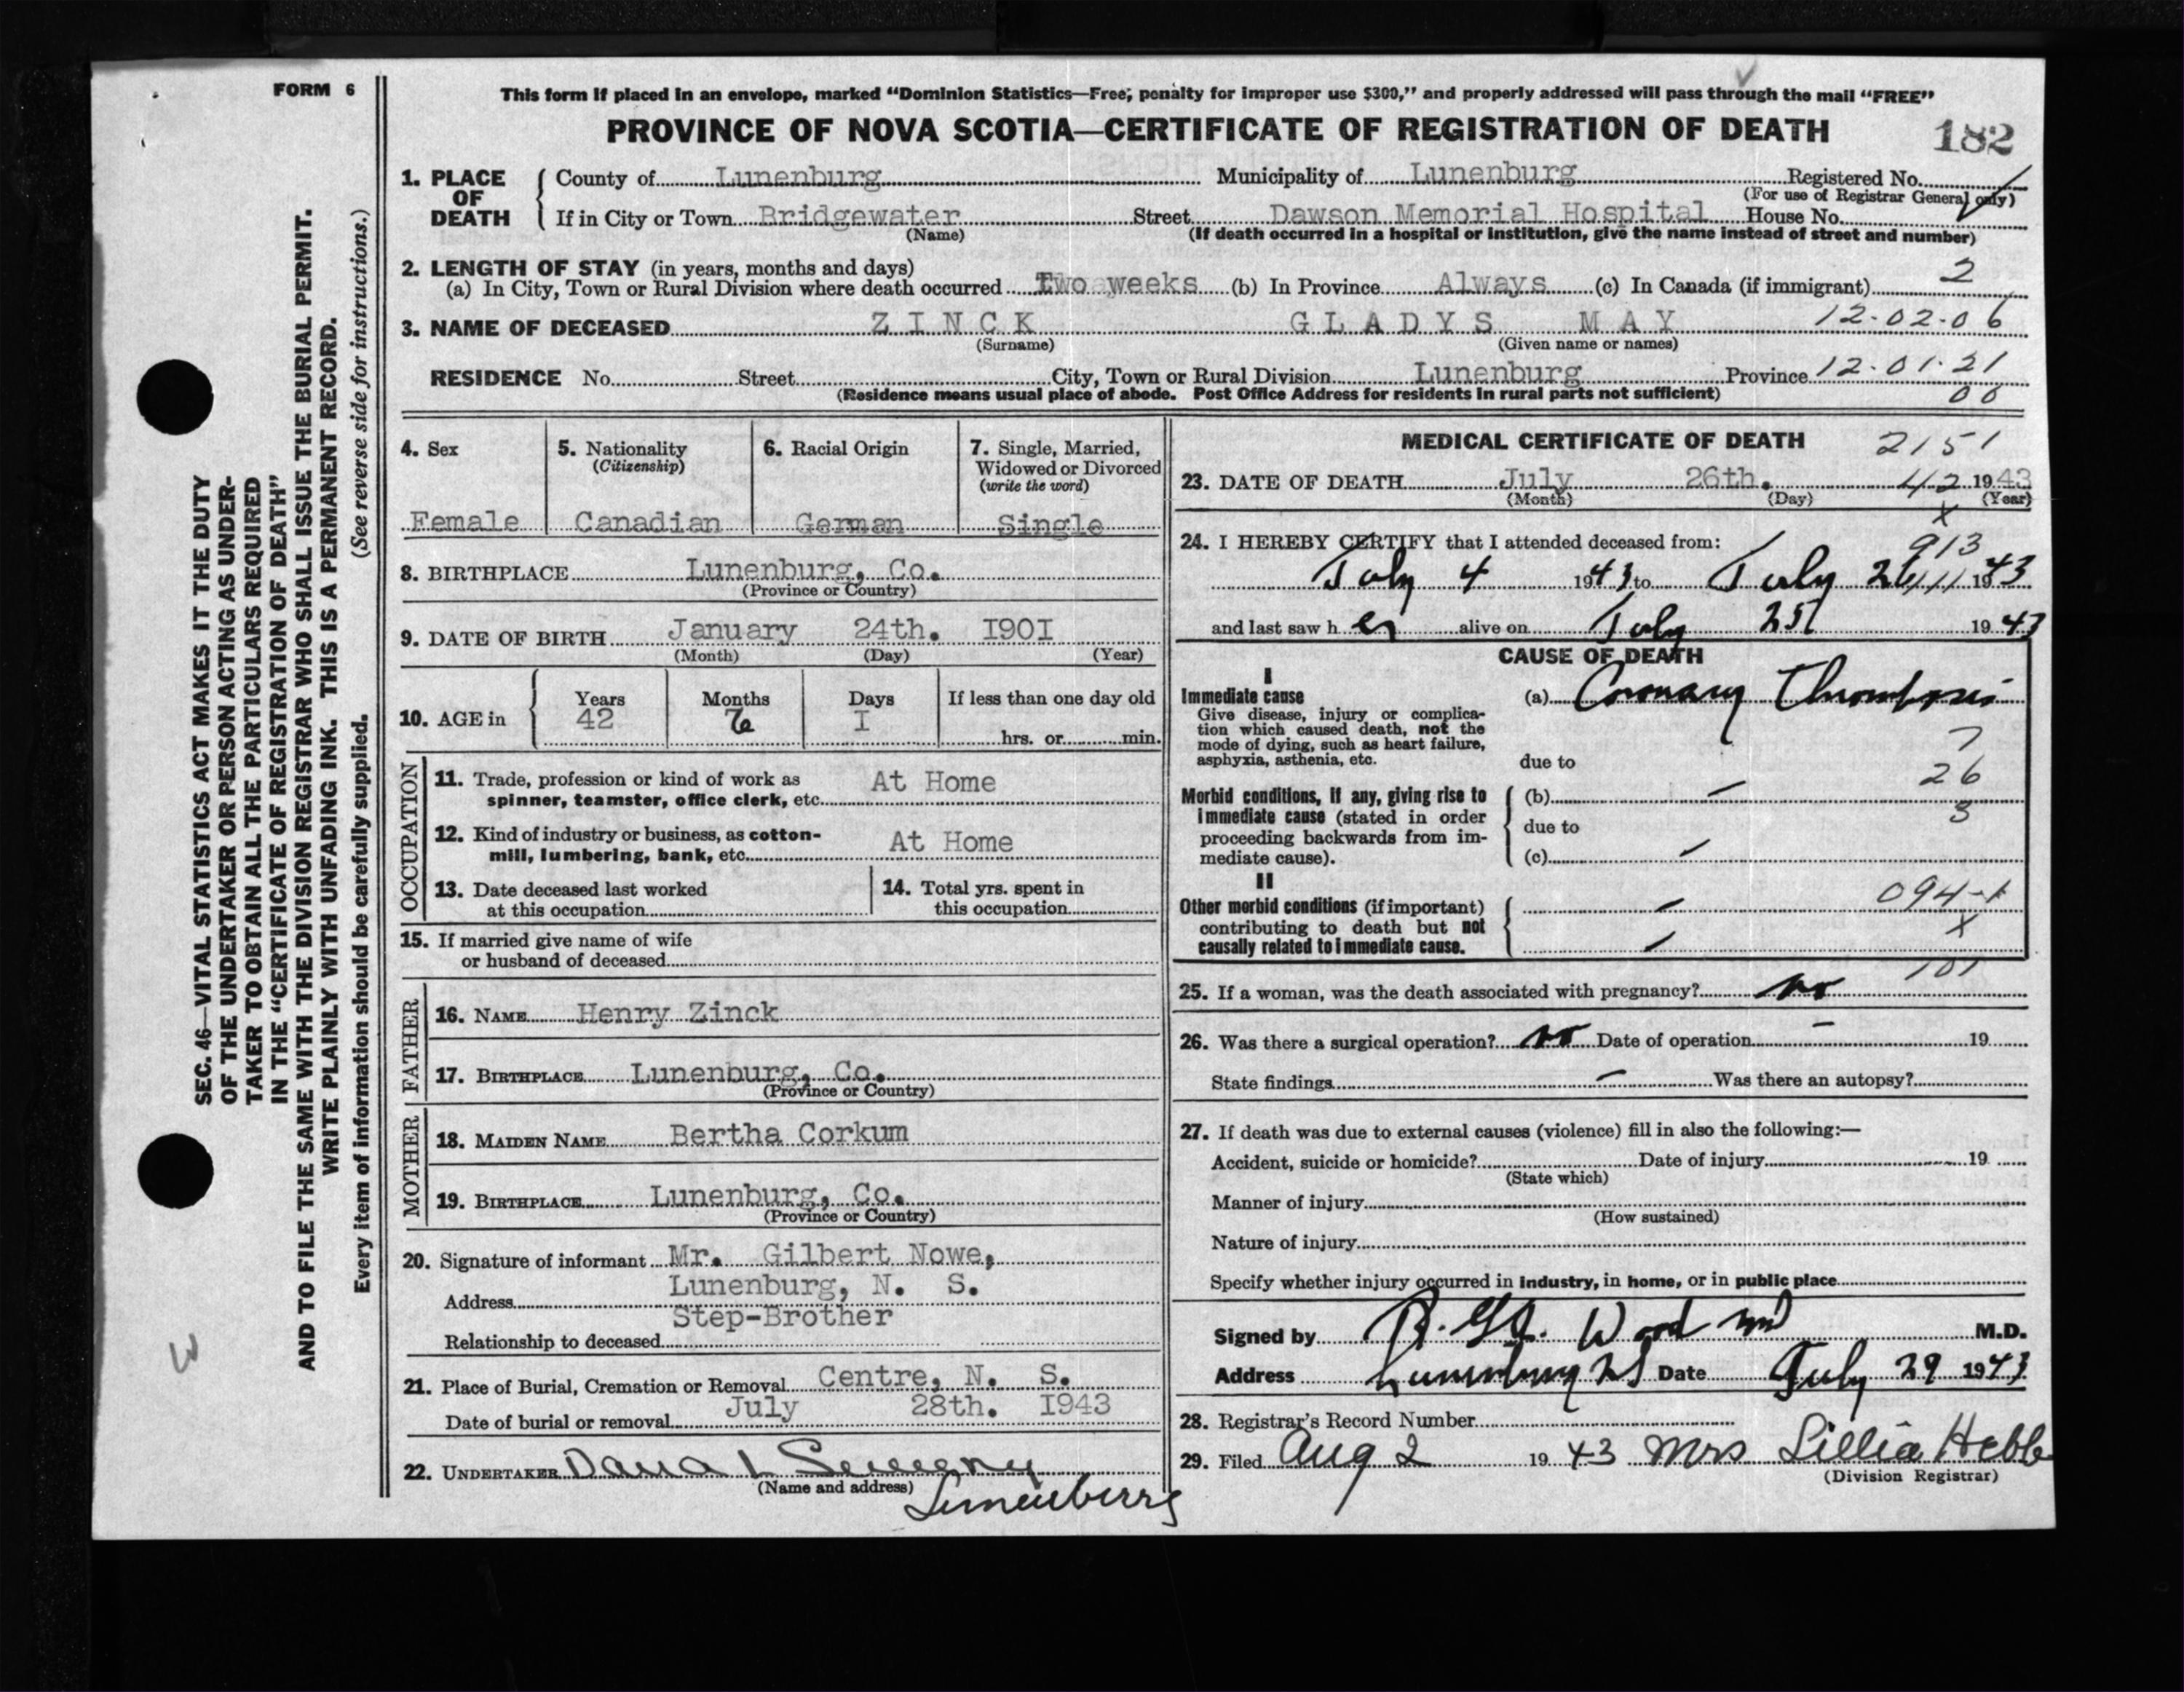 FORM 6
This form if placed in an envelope, marked “Dominion Statistics—Free; penalty for improper use $300,” and properly addressed will pass through the mail “FREE”
PROVINCE OF NOVA SCOTIA—CERTIFICATE OF REGISTRATION OF DEATH
182
1. PLACE OF DEATH
County of Lunenburg Municipality of Lunenburg Registered No.
(For use of Registrar General only)
If in City or Town Bridgewater Street Dawson Memorial Hospital House No.
(Name) (If death occurred in a hospital or institution, give the name instead of street and number)
2. LENGTH OF STAY (in years, months and days)
(a) In City, Town or Rural Division where death occurred Two weeks (b) In Province Always (c) In Canada (if immigrant) 2
3. NAME OF DECEASED ZINCK GLADYS MAY 12-02-06
(Surname) (Given name or names)
RESIDENCE No. Street City, Town or Rural Division Lunenburg Province 12-01-21
(Residence means usual place of abode. Post Office Address for residents in rural parts not sufficient) 00
4. Sex
Female
5. Nationality
(Citizenship)
Canadian
6. Racial Origin
German
7. Single, Married,
Widowed or Divorced
(write the word)
Single
8. BIRTHPLACE Lunenburg, Co.
(Province or Country)
9. DATE OF BIRTH January 24th. I90I
(Month) (Day) (Year)
10. AGE in
Years Months Days If less than one day old
42 6 I hrs. or min.
OCCUPATION
11. Trade, profession or kind of work as
spinner, teamster, office clerk, etc. At Home
12. Kind of industry or business, as cotton-
mill, lumbering, bank, etc. At Home
13. Date deceased last worked
at this occupation
14. Total yrs. spent in
this occupation
15. If married give name of wife
or husband of deceased
FATHER
16. NAME Henry Zinck
17. BIRTHPLACE Lunenburg, Co.
(Province or Country)
MOTHER
18. MAIDEN NAME Bertha Corkum
19. BIRTHPLACE Lunenburg, Co.
(Province or Country)
20. Signature of informant Mr. Gilbert Nowe,
Address Lunenburg, N. S.
Relationship to deceased Step-Brother
21. Place of Burial, Cremation or Removal Centre, N. S.
Date of burial or removal July 28th. I943
22. UNDERTAKER
(Name and address)
Lunenburg
MEDICAL CERTIFICATE OF DEATH 2151
23. DATE OF DEATH July 26th. 42 1943
(Month) (Day) (Year)
X
24. I HEREBY CERTIFY that I attended deceased from: 913
July 4 1943 to July 26 1943
and last saw her alive on July 25 1943
CAUSE OF DEATH
I
Immediate cause
Give disease, injury or complica-
tion which caused death, not the
mode of dying, such as heart failure,
asphyxia, asthenia, etc.
(a) Coronary Thrombosis
7
due to
26
Morbid conditions, if any, giving rise to
immediate cause (stated in order
proceeding backwards from im-
mediate cause).
(b) –
3
due to
(c) –
II
Other morbid conditions (if important)
contributing to death but not
causally related to immediate cause.
094-1
X
101
25. If a woman, was the death associated with pregnancy? no
26. Was there a surgical operation? no Date of operation – 19
State findings – Was there an autopsy?
27. If death was due to external causes (violence) fill in also the following:—
Accident, suicide or homicide? Date of injury 19
(State which)
Manner of injury
(How sustained)
Nature of injury
Specify whether injury occurred in industry, in home, or in public place
Signed by Wood md M.D.
Address Lunenburg NS Date July 29 1943
28. Registrar's Record Number
29. Filed Aug 2 1943 Mrs Lillia Hebb
(Division Registrar)
SEC. 46—VITAL STATISTICS ACT MAKES IT THE DUTY
OF THE UNDERTAKER OR PERSON ACTING AS UNDER-
TAKER TO OBTAIN ALL THE PARTICULARS REQUIRED
IN THE “CERTIFICATE OF REGISTRATION OF DEATH”
AND TO FILE THE SAME WITH THE DIVISION REGISTRAR WHO SHALL ISSUE THE BURIAL PERMIT.
WRITE PLAINLY WITH UNFADING INK. THIS IS A PERMANENT RECORD.
Every item of information should be carefully supplied. (See reverse side for instructions.)